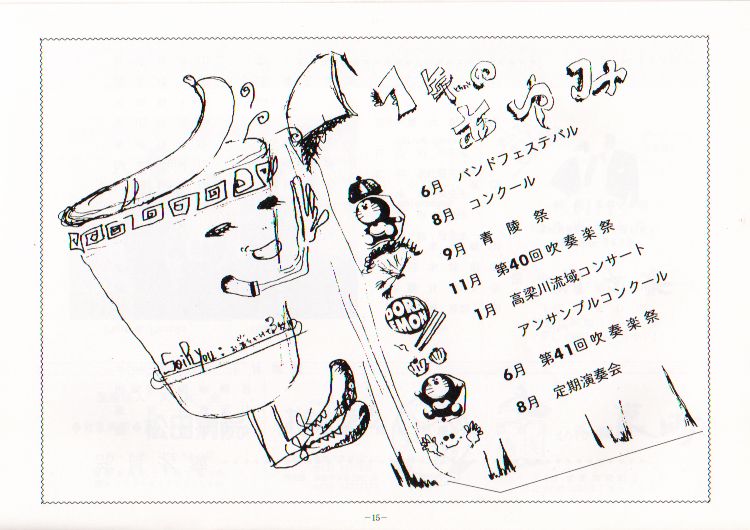 1年の
あゆみ
6月 バンドフェステバル
8月 コンクール
9月 青陵祭
11月 第40回吹奏楽祭
1月 高梁川流域コンサート
アンサンブルコンクール
6月 第41回吹奏楽祭
8月 定期演奏会
DORA
MON
SoiRyou:
-15-